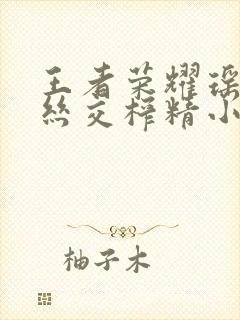 王者荣耀瑶
丝交榨精小
柚子木